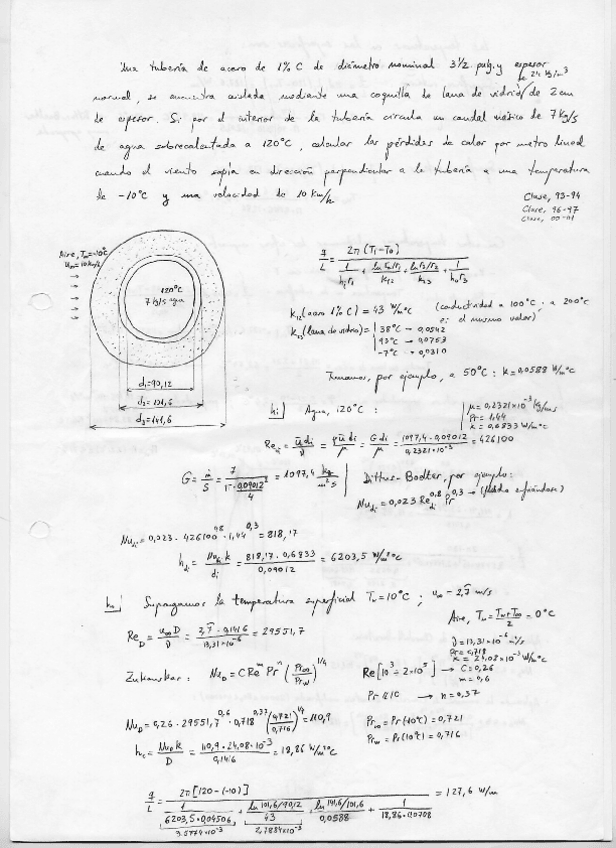 Una tubería de acero de 1% C de diámetro nominal 3 1/2 pulg. y espesor
de 24 Kg/m³
normal, se encuentra aislada mediante una coquilla de lana de vidrio de 2 cm
de espesor. Si por el interior de la tubería circula un caudal másico de 7 Kg/s
de agua sobrecalentada a 120°C, calcular las pérdidas de calor por metro lineal
cuando el viento sopla en dirección perpendicular a la tubería a una temperatura
de -10°C y una velocidad de 10 Km/h
Clase, 93-94
Clase, 96-97
Clase, 00-01
Aire, T∞=-10°C
u∞=10 km/h
120°C
7 kg/s agua
d₁=90,12
d₂=101,6
d₃=141,6
q/L = 2π(T₁-T₀) / (1/(h₁r₁) + ln r₂/r₁ / K₁₂ + ln r₃/r₂ / K₂₃ + 1/(h₀r₃))
K₁₂ (acero 1% C) = 43 W/m°C (conductividad a 100°C y a 200°C
es el mismo valor)
K₂₃ (lana de vidrio) = | 38°C → 0,0542
93°C → 0,0753
-7°C → 0,0310
Tomamos, por ejemplo, a 50°C : K=0,0588 W/m°C
hᵢ) Agua, 120°C :
μ = 0,2321×10⁻³ Kg/ms
Pr = 1,44
K = 0,6833 W/m°C
Re_di = ū di/ν = ρū di/μ = G di/μ = 1097,4 · 0,09012 / 0,2321×10⁻³ = 426100
G = ṁ/S = 7 / (π · 0,09012²/4) = 1097,4 kg/m²s
Dittus-Boelter, por ejemplo:
Nu_di = 0,023 Re_di^0,8 Pr^0,3 → (fluido enfriándose)
Nu_di = 0,023 · 426100^0,8 · 1,44^0,3 = 818,17
h_di = Nu_di K / di = 818,17 · 0,6833 / 0,09012 = 6203,5 W/m²°C
h₀) Supongamos la temperatura superficial Tw = 10°C ; u∞ = 2,7̂ m/s
Aire, Tm = (Tw+T∞)/2 = 0°C
Re_D = u∞ D/ν = 2,7̂ · 0,1416 / 13,31·10⁻⁶ = 29551,7
ν = 13,31×10⁻⁶ m²/s
Pr = 0,718
K = 24,08×10⁻³ W/m°C
Zukauskar: Nu_D = C Re^m Pr^n (Pr∞/Prw)^1/4
Re [10³ ÷ 2·10⁵] → C = 0,26
m = 0,6
Pr < 10 → n = 0,37
Nu_D = 0,26 · 29551,7^0,6 · 0,718^0,37 (0,721/0,716)^1/4 = 110,9
Pr∞ = Pr(-10°C) = 0,721
Prw = Pr(10°C) = 0,716
h₀ = Nu_D K / D = 110,9 · 24,08·10⁻³ / 0,1416 = 18,86 W/m²°C
q/L = 2π[120-(-10)] / (1/(6203,5 · 0,04506) + ln 101,6/90,12 / 43 + ln 141,6/101,6 / 0,0588 + 1/(18,86 · 0,0708)) = 127,6 W/m
3,5774×10⁻³
2,7884×10⁻³